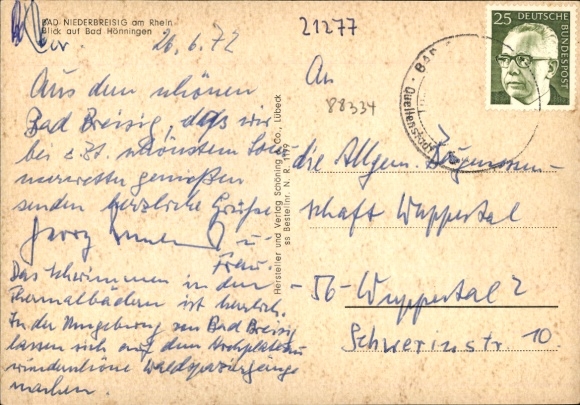 BAD NIEDERBREISIG am Rhein
Blick auf Bad Hönningen
26.6.72
Aus dem schönen
Bad Breisig, das wir
bei z.Zt. schönstem Som-
merwetter genießen
senden herzliche Grüße
u.
Frau.
Das Schwimmen in den
Thermalbädern ist herrlich.
In der Umgebung von Bad Breisig
lassen sich auf dem Hochplateau
wunderschöne Waldspaziergänge
machen
Hersteller und Verlag Schöning & Co., Lübeck
ss Bestellnr. N. R. 1179
21277
An
88334
die Allgem. Bürgergenossen-
schaft Wuppertal
56-Wuppertal 2
Schwerinstr. 10
25 DEUTSCHE
BUNDESPOST
BAD
Quellenstadt